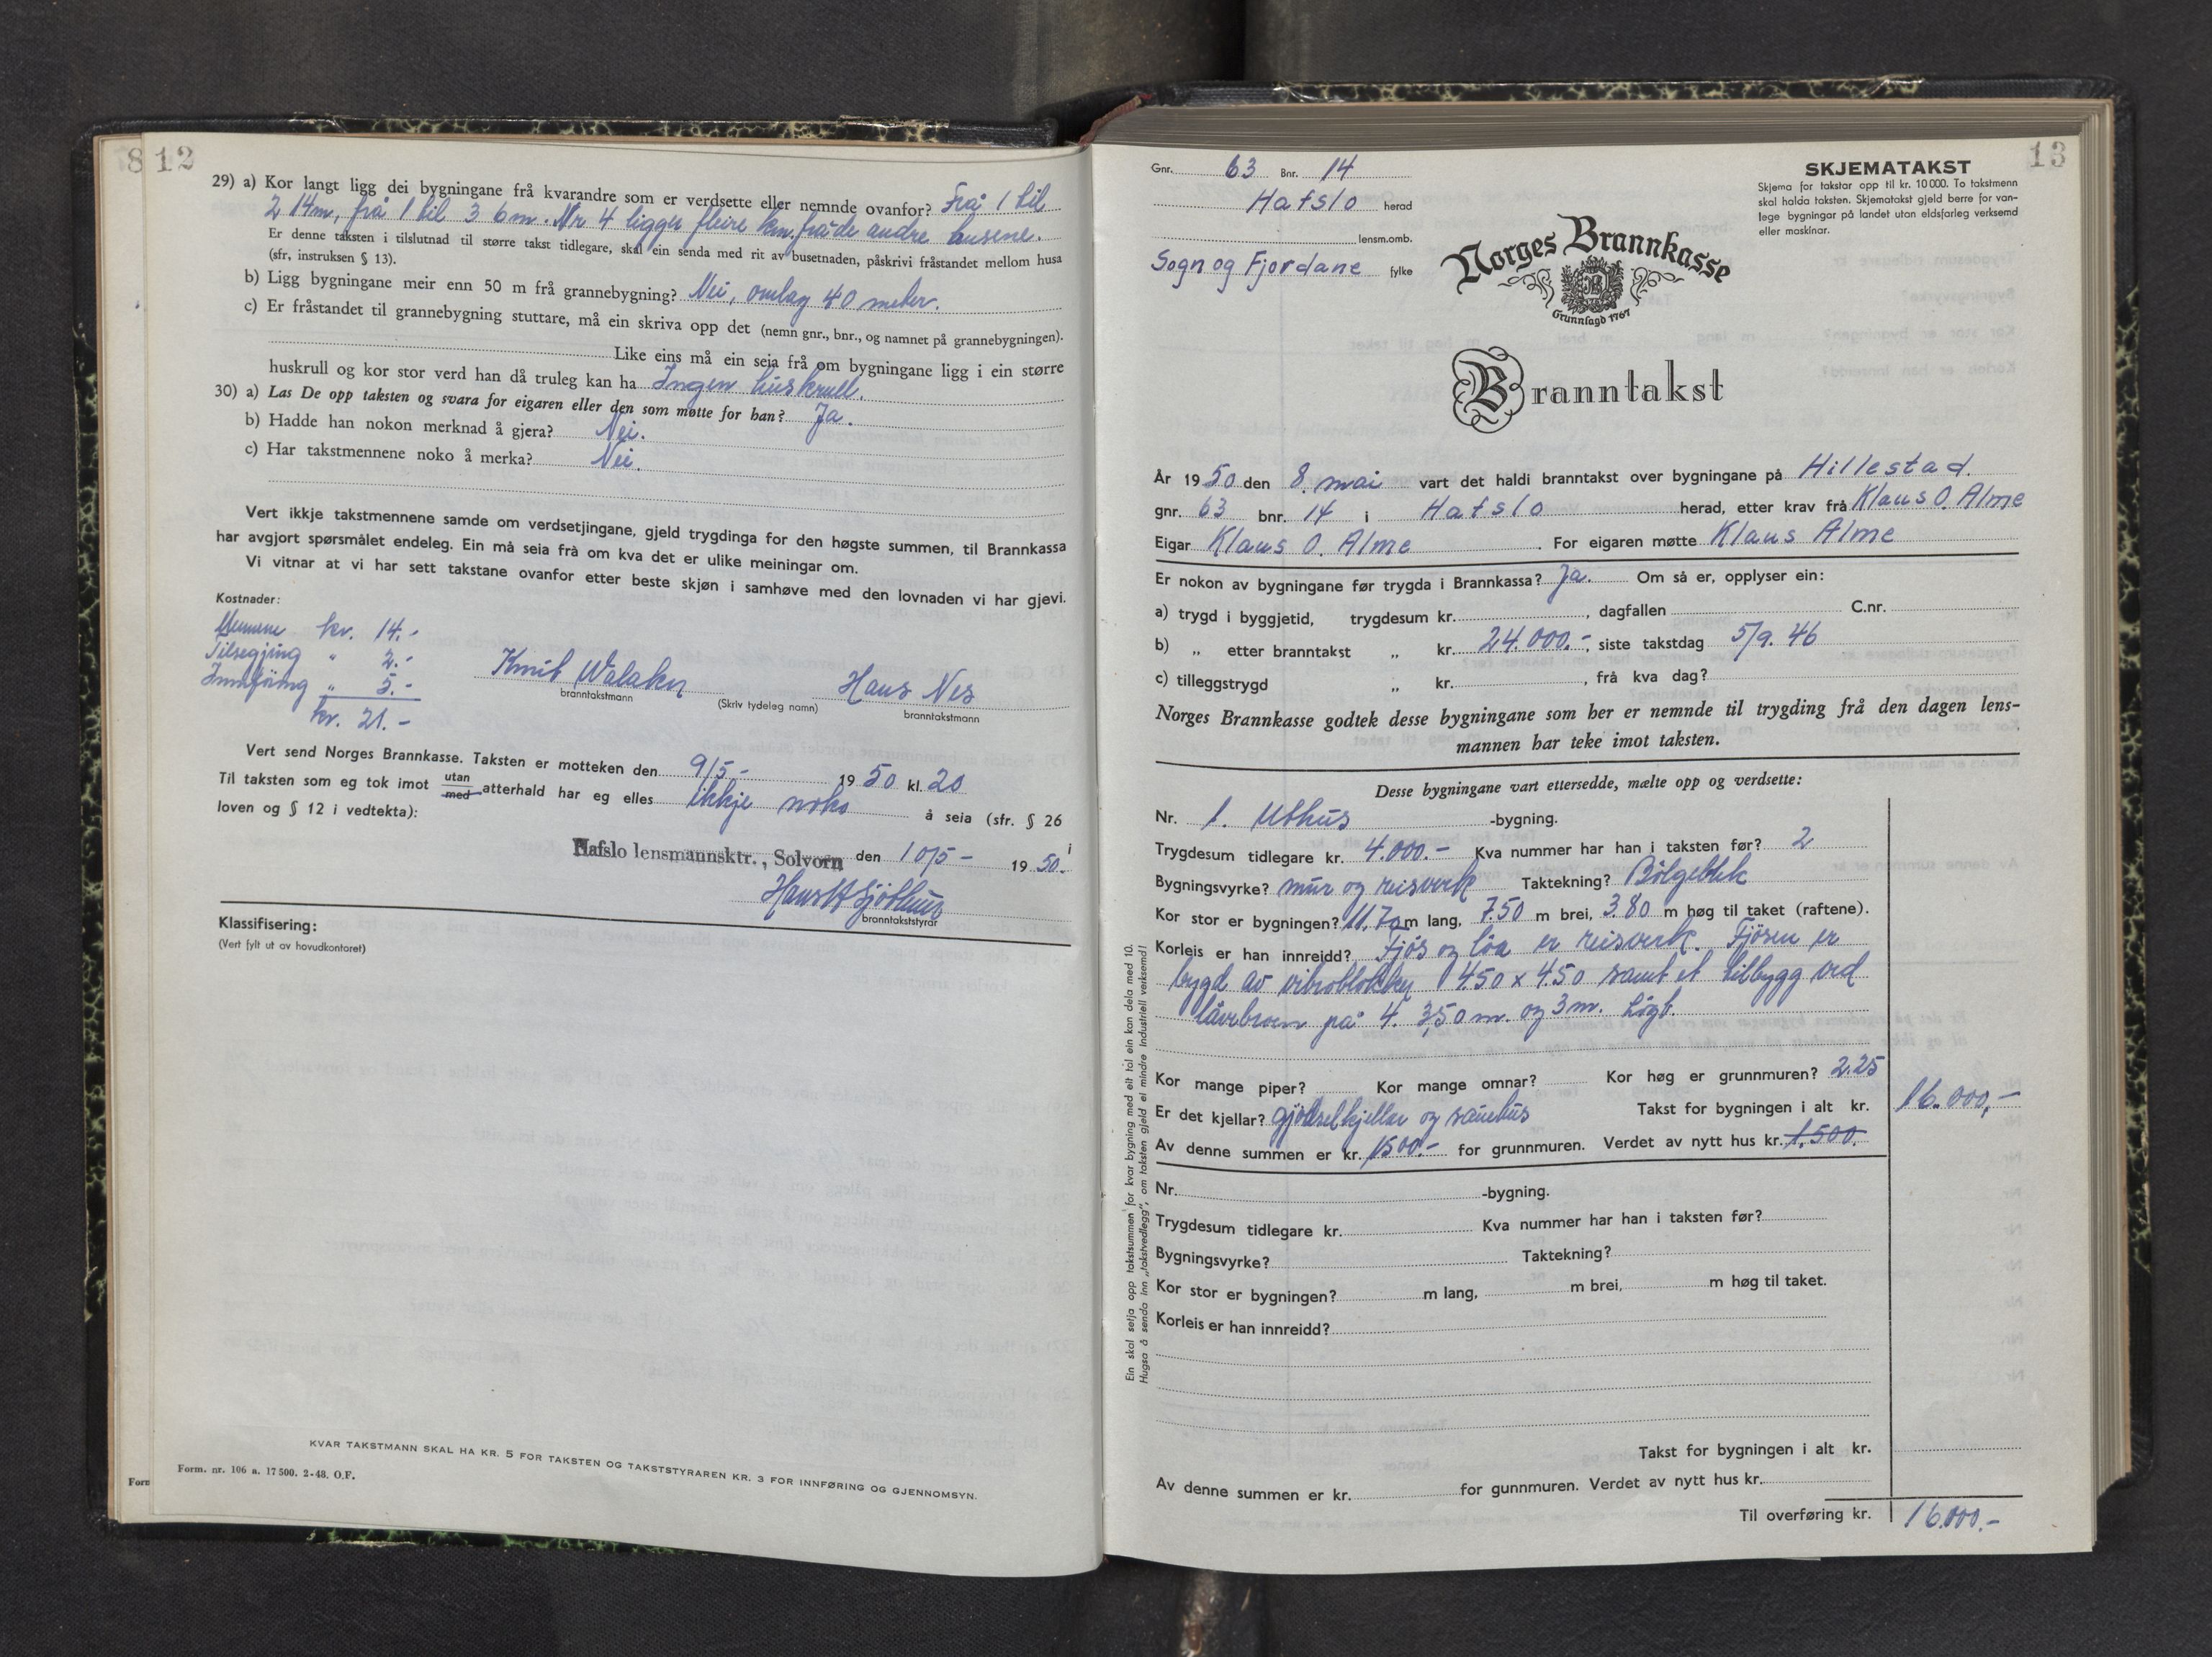 8 12
29) a) Kor langt ligg dei bygningane frå kvarandre som er verdsette eller nemnde ovanfor? Frå 1 til
2 14m, frå 1 til 3 6m. Nr 4 ligger fleire km. frå de andre husene.
Er denne taksten i tilslutnad til større takst tidlegare, skal ein senda med rit av busetnaden, påskrivi fråstandet mellom husa
(sfr, instruksen § 13).
b) Ligg bygningane meir enn 50 m frå grannebygning? Nei, omlag 40 meter.
c) Er fråstandet til grannebygning stuttare, må ein skriva opp det (nemn gnr., bnr., og namnet på grannebygningen).
Like eins må ein seia frå om bygningane ligg i ein større
huskrull og kor stor verd han då truleg kan ha Ingen huskrull.
30) a) Las De opp taksten og svara for eigaren eller den som møtte for han? Ja.
b) Hadde han nokon merknad å gjera? Nei.
c) Har takstmennene noko å merka? Nei.
Vert ikkje takstmennene samde om verdsetjingane, gjeld trygdinga for den høgste summen, til Brannkassa
har avgjort spørsmålet endeleg. Ein må seia frå om kva det er ulike meiningar om.
Vi vitnar at vi har sett takstane ovanfor etter beste skjøn i samhøve med den lovnaden vi har gjevi.
Kostnader:
Mennene kr. 14.-
Tilsegjing " 2.-
Innføring " 5.-
kr. 21.-
Knut Walaker
branntakstmann
(Skriv tydeleg namn)
Hans Nes
branntakstmann
Vert send Norges Brannkasse. Taksten er motteken den 9/5- 1950 kl. 20
Til taksten som eg tok imot utan med atterhald har eg elles ikkje noko å seia (sfr. § 26 i
loven og § 12 i vedtekta):
Hafslo lensmannsktr., Solvorn den 10/5- 1950.
Hans H Sjøthun
branntakststyrar
Klassifisering:
(Vert fylt ut av hovudkontoret)
KVAR TAKSTMANN SKAL HA KR. 5 FOR TAKSTEN OG TAKSTSTYRAREN KR. 3 FOR INNFØRING OG GJENNOMSYN.
Form
Form. nr. 106 a. 17500. 2-48. O.F.
13
Gnr. 63 Bnr. 14
Hafslo herad
lensm.omb.
Sogn og Fjordane fylke
SKJEMATAKST
Skjema for takstar opp til kr. 10000. To takstmenn
skal halda taksten. Skjematakst gjeld berre for van-
lege bygningar på landet utan eldsfarleg verksemd
eller maskinar.
Norges Brannkasse
Grunnlagd 1767
Branntakst
År 1950 den 8. mai vart det haldi branntakst over bygningane på Hillestad.
gnr. 63 bnr. 14 i Hafslo herad, etter krav frå Klaus O. Alme
Eigar Klaus O. Alme. For eigaren møtte Klaus Alme
Er nokon av bygningane før trygda i Brannkassa? Ja. Om så er, opplyser ein:
a) trygd i byggjetid, trygdesum kr. , dagfallen C.nr.
b) „ etter branntakst „ kr. 24.000.-, siste takstdag 5/9. 46
c) tilleggstrygd „ kr. , frå kva dag?
Norges Brannkasse godtek desse bygningane som her er nemnde til trygding frå den dagen lens-
mannen har teke imot taksten.
Desse bygningane vart ettersedde, mælte opp og verdsette:
Nr. 1. Uthus -bygning.
Trygdesum tidlegare kr. 4.000.- Kva nummer har han i taksten før? 2
Bygningsvyrke? mur og reisverk Taktekning? Bölgeblek
Kor stor er bygningen? 11,70 m lang, 7.50 m brei, 3.80 m høg til taket (raftene).
Korleis er han innreidd? Fjös og löa er reisverk. Fjösen er
bygd av vibroblokker 450 x 4.50 samt et tilbygg ved
låvebroen på 4. 3,50 m. og 3 m. högt.
Kor mange piper? Kor mange omnar? Kor høg er grunnmuren? 2.25
Er det kjellar? gjödselkjellar og sauehus Takst for bygningen i alt kr. 16.000,-
Av denne summen er kr. 1500.- for grunnmuren. Verdet av nytt hus kr. 1.500.
Nr. -bygning.
Trygdesum tidlegare kr. Kva nummer har han i taksten før?
Bygningsvyrke? Taktekning?
Kor stor er bygningen? m lang, m brei, m høg til taket.
Korleis er han innreidd?
Takst for bygningen i alt kr.
Av denne summen er kr. for gunnmuren. Verdet av nytt hus kr.
Til overføring kr. 16.000.-
Ein skal setja opp takstsummen for kvar bygning med eit tal ein kan dela med 10.
Hugsa å senda inn „takstvedlegg", om taksten gjeld ei mindre industriell verksemd!